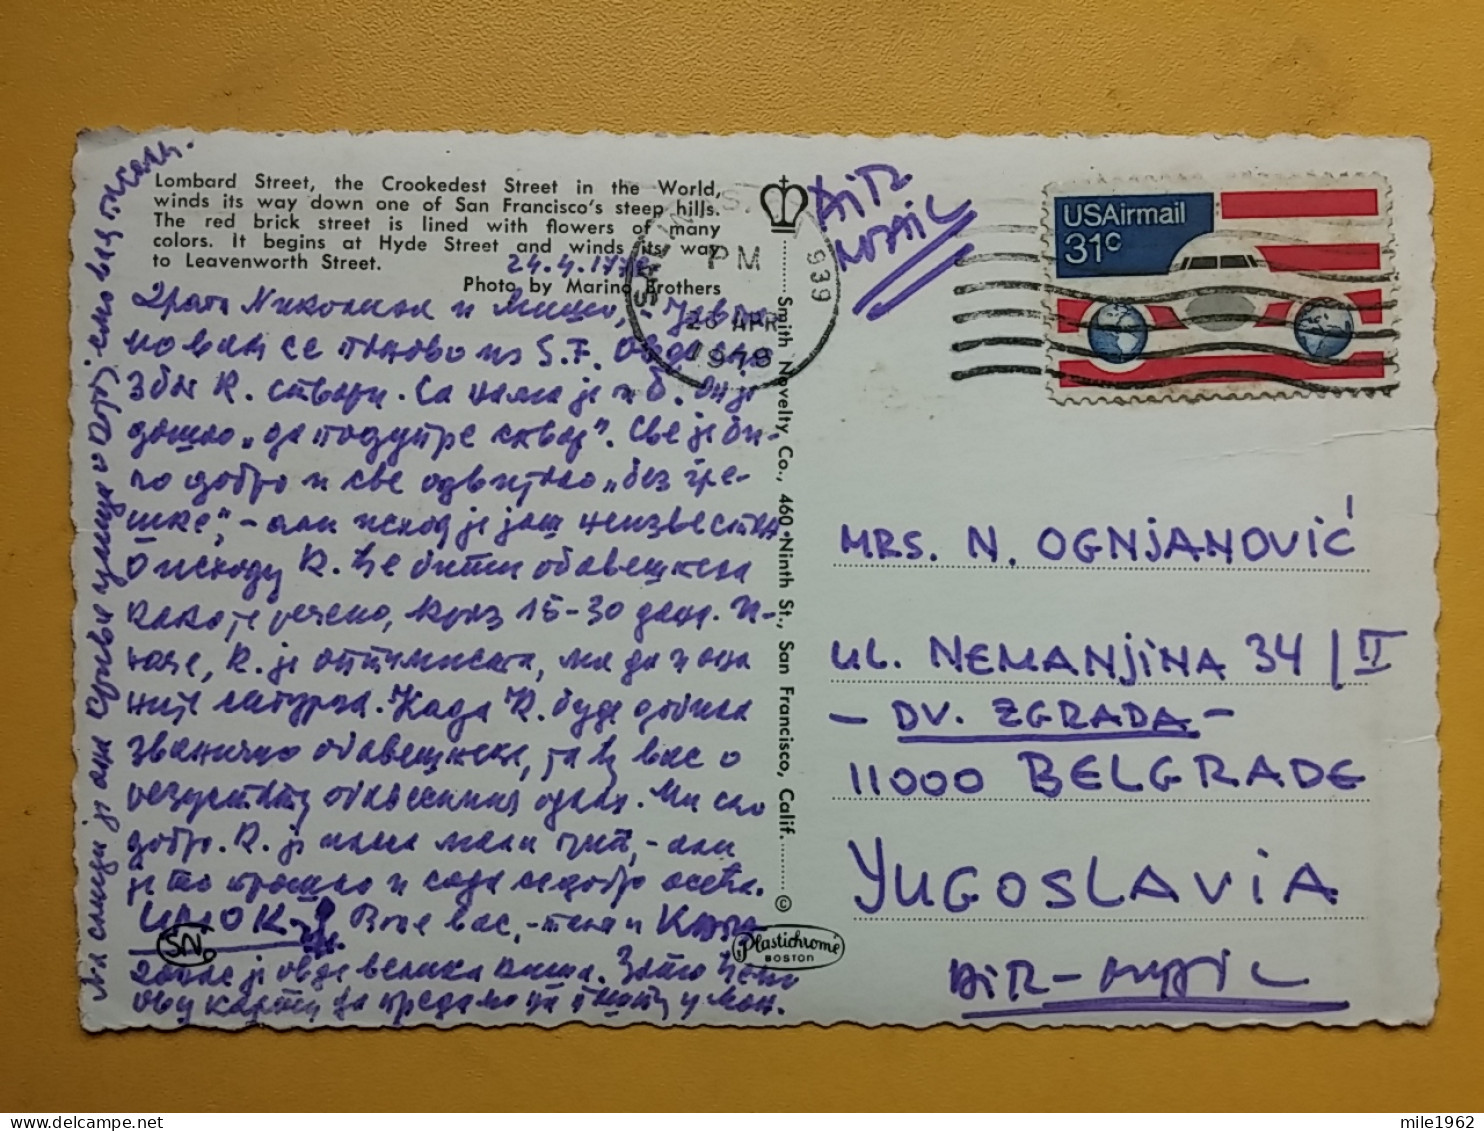 Lombard Street, the Crookedest Street in the World,
winds its way down one of San Francisco's steep hills.
The red brick street is lined with flowers of many
colors. It begins at Hyde Street and winds its way
to Leavenworth Street.
Photo by Marino Brothers
24.4.1978
и Мишо, – Јављ
мо вам се поново из S.F. Овде смо
због К. ствари. Са нама је и Б. Он је
дошао „да подупре ствар". Све је би-
ло добро и све одвијано „без гре-
шке", – али исход је још неизвестан
О исходу К. ће бити обавештена
како је речено, кроз 15-30 дана. И-
наче, К. је оптимиста, ма да и она
није сигурна. Када К. буде добила
званично обавештење, ја ћу вас о
резултату обавестити одмах. Ми смо
добро. К. је имала мали грип, – али
је то прошло и сада се добро осећа.
Воле вас, – тета и
данас је овде велика киша. Зато ћемо
ову карту да предамо на пошту у
SN.
PM
APR
1978
939
Smith Novelty Co., 460 Ninth St., San Francisco, Calif.
©
Plastichrome
BOSTON
AIR
MAIL
USAirmail
31c
MRS. N. OGNJANOVIĆ
UL. NEMANJINA 34/II
– DV. ZGRADA –
11000 BELGRADE
YUGOSLAVIA
AIR-MAIL
mile1962